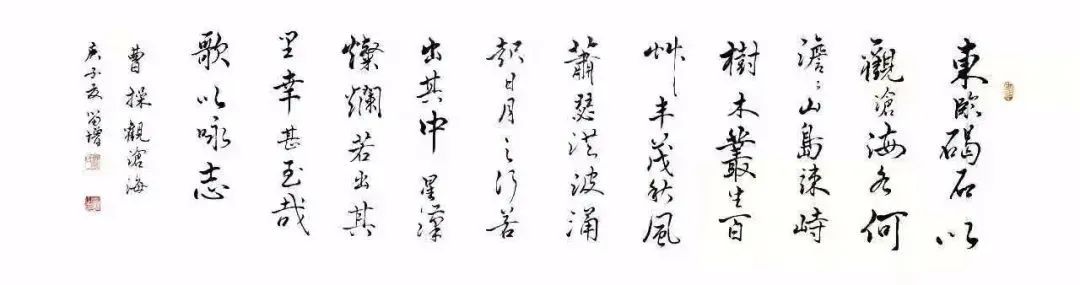 東臨碣石以
觀滄海水何
澹澹山島竦峙
樹木叢生百
艸丰茂秋風
蕭瑟洪波涌
起日月之行若
出其中星漢
燦爛若出其
里幸甚至哉
歌以咏志
曹操觀滄海
庚子夏